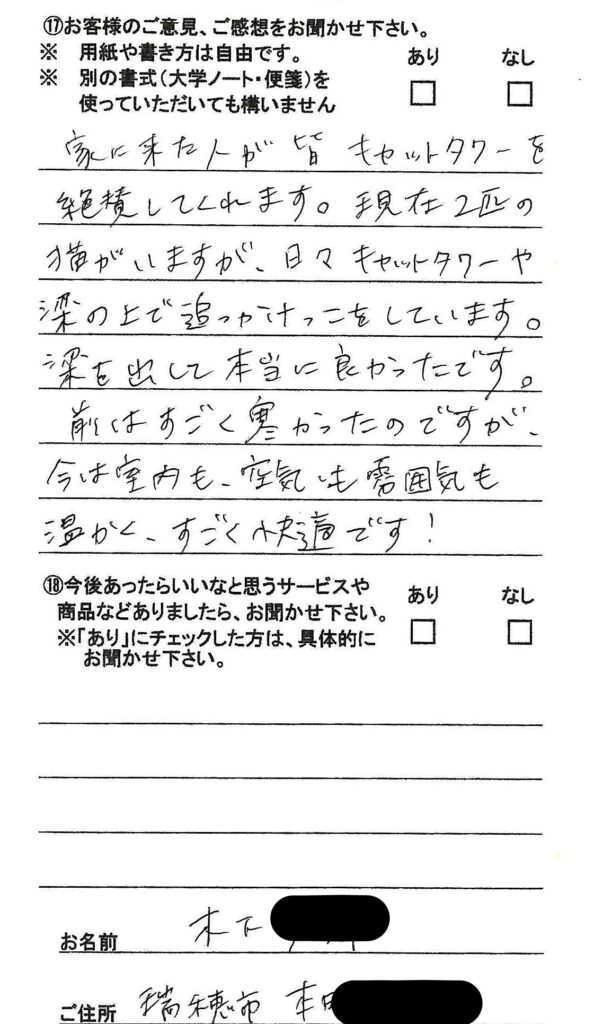 ⑰お客様のご意見、ご感想をお聞かせ下さい。
※ 用紙や書き方は自由です。 あり なし
※ 別の書式(大学ノート・便箋)を
使っていただいても構いません
家に来た人が皆キャットタワーを
絶賛してくれます。現在2匹の
猫がいますが、日々キャットタワーや
梁の上で追っかけっこをしています。
梁を出して本当に良かったです。
前はすごく寒かったのですが、
今は室内も、空気も雰囲気も
温かく、すごく快適です!
⑱今後あったらいいなと思うサービスや あり なし
商品などありましたら、お聞かせ下さい。
※「あり」にチェックした方は、具体的に
お聞かせ下さい。
お名前 木下
ご住所 瑞穂市 本田